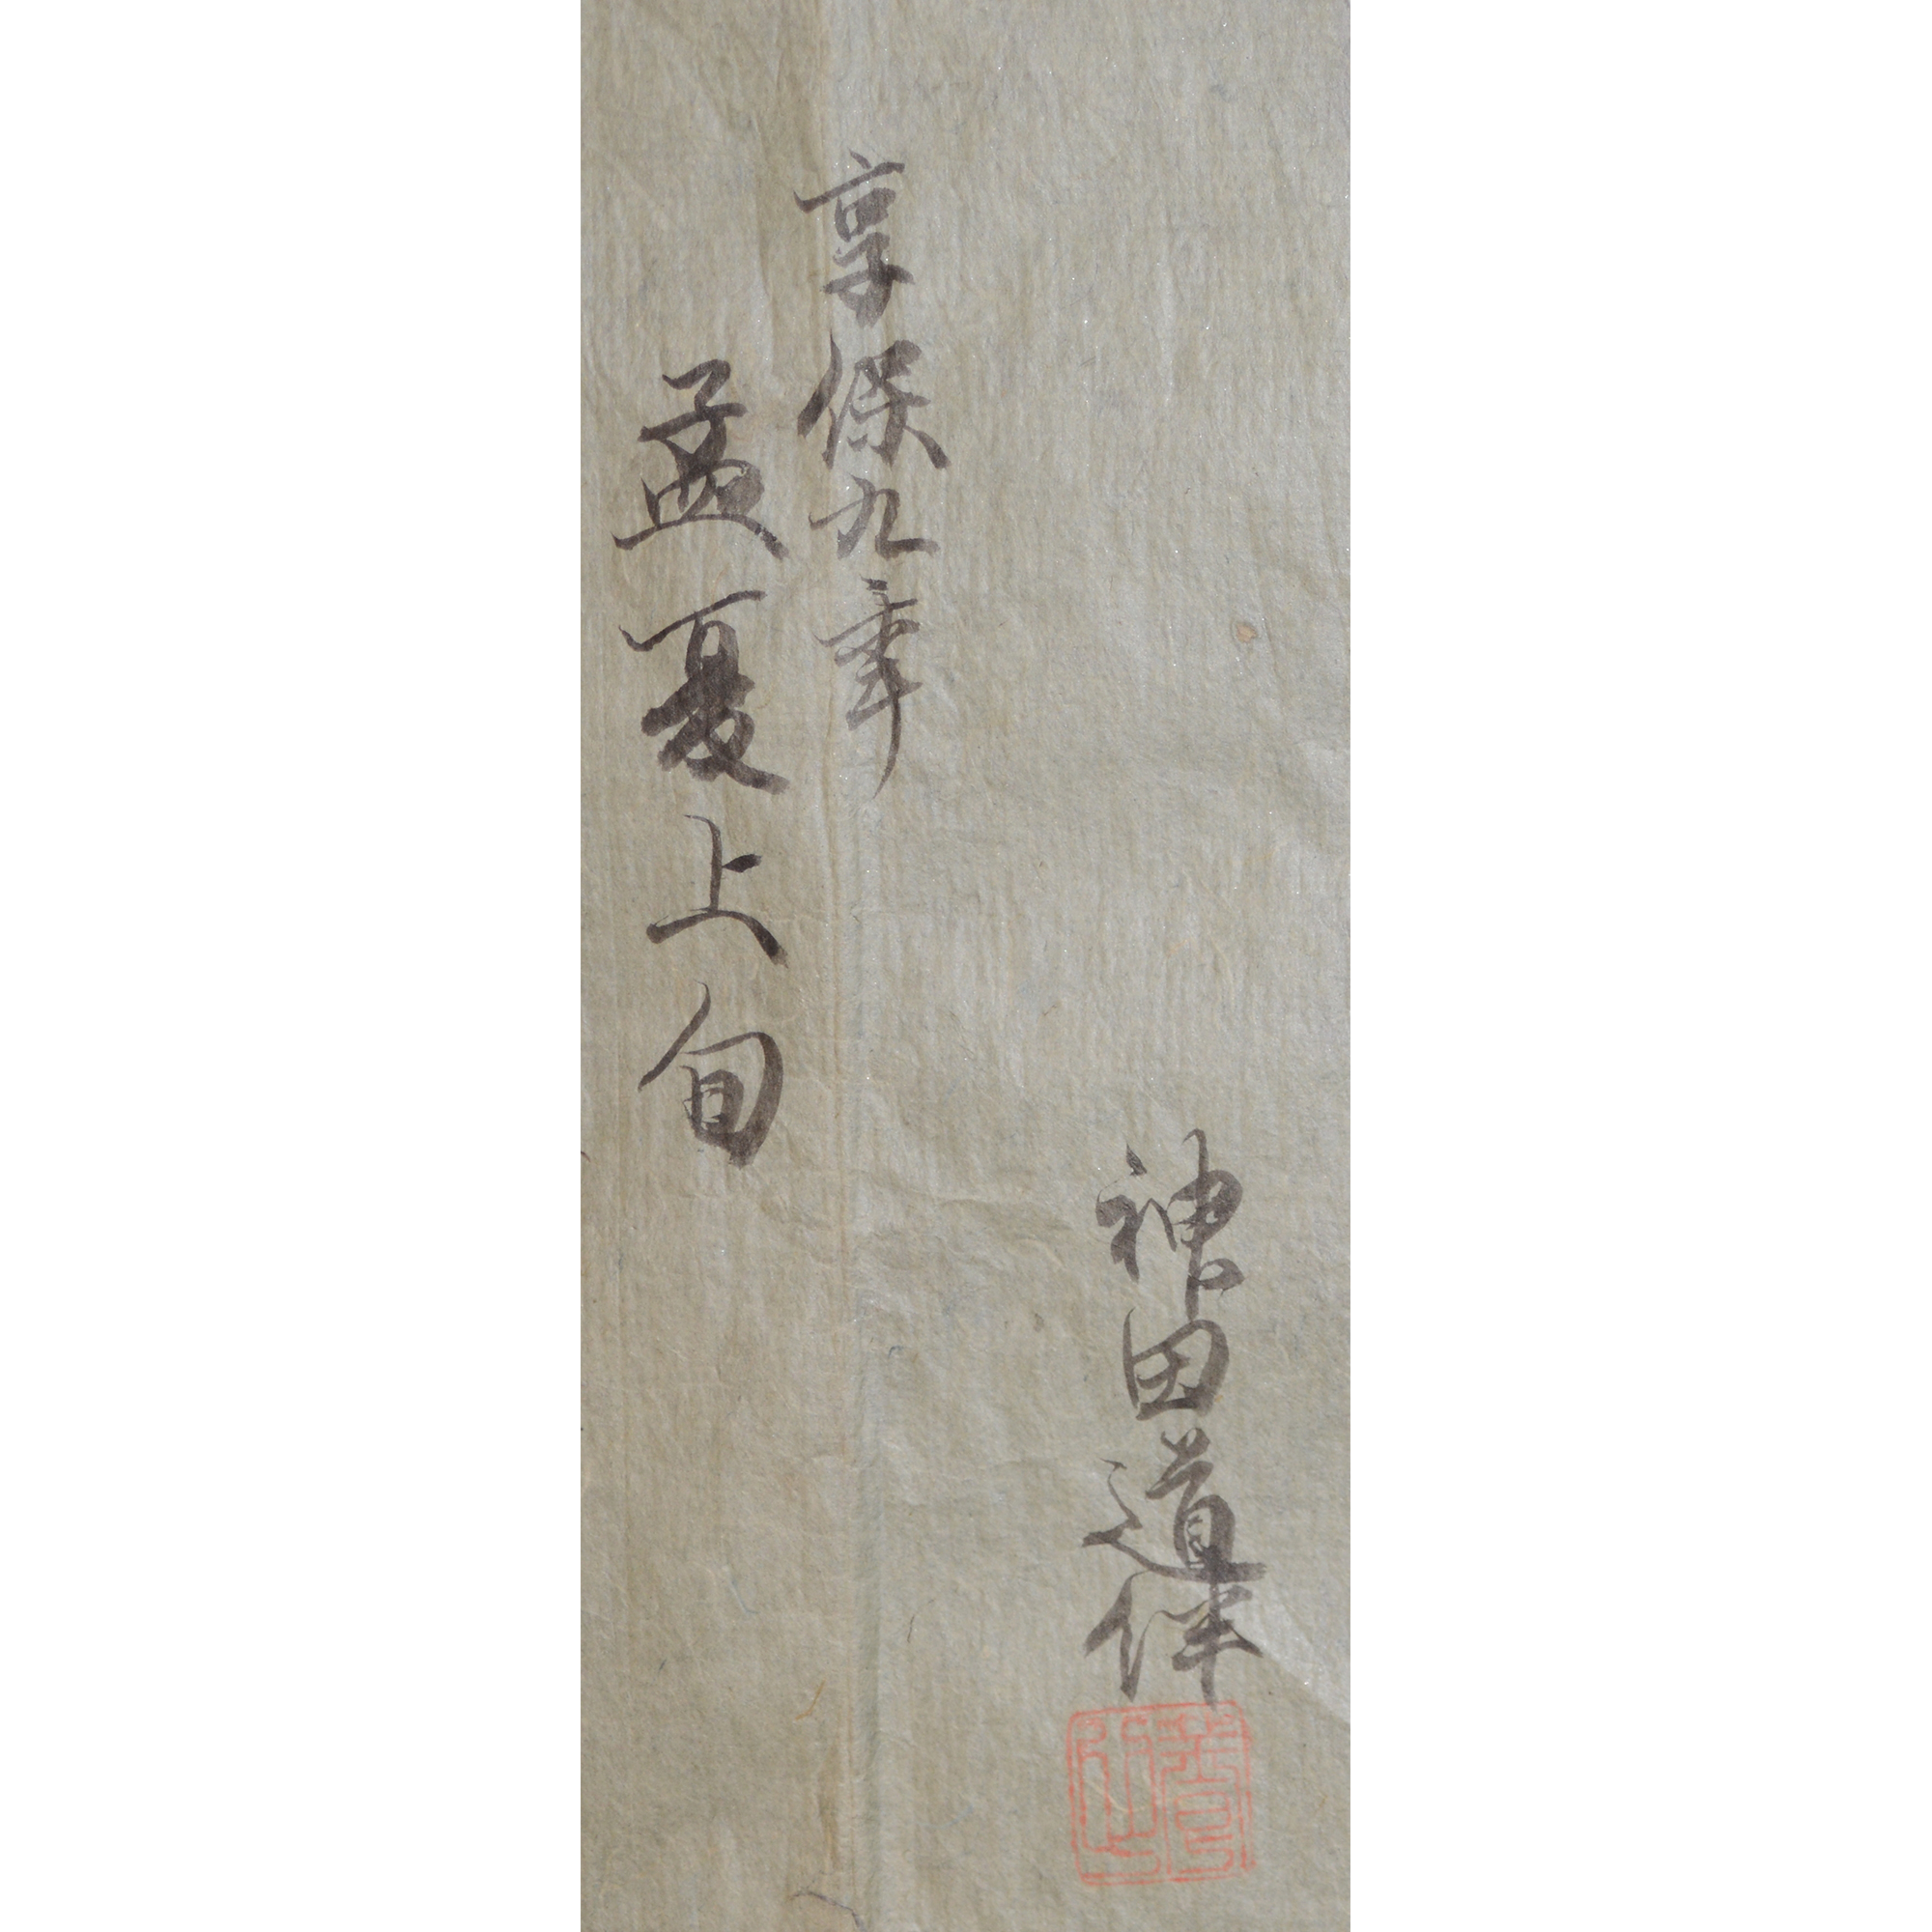 神田道伴
享保九年
孟夏上旬